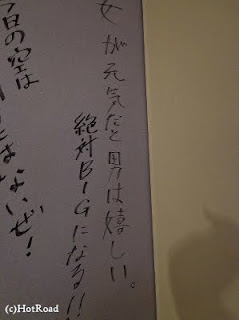 女が元気だと男は嬉しい。
絶対BIGになる!!
今日の空は
はないぜ!
(c)HotRoad